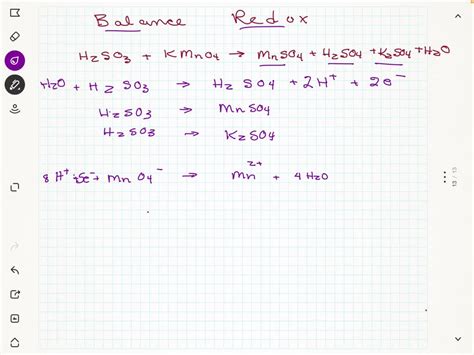 Balance Redox
H2SO3 + KMnO4 → MnSO4 + H2SO4 + K2SO4 + H2O
H2O + H2SO3 → H2SO4 + 2H+ + 2e-
H2SO3 → MnSO4
H2SO3 → K2SO4
8H+ + 5e- + MnO4- → Mn2+ + 4H2O
13 / 13